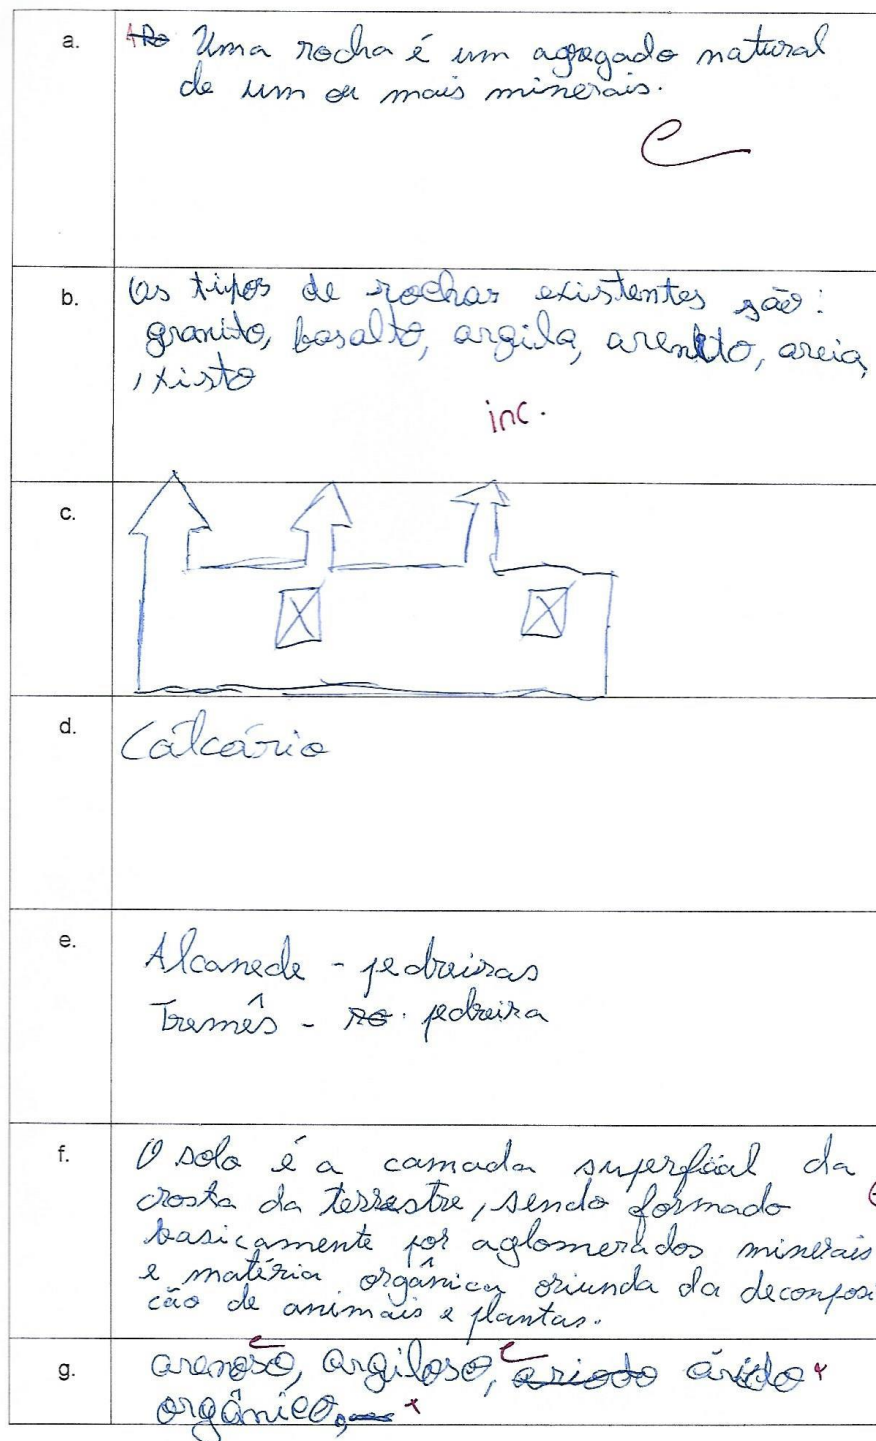 a. Uma rocha é um agregado natural
de um ou mais minerais.
C
b. Os tipos de rochas existentes são:
granito, basalto, argila, arenito, areia,
, xisto
inc.
c.
d. Calcário
e. Alcanede - pedreiras
Tremês - pedreira
f. O solo é a camada superficial da
crosta da terrestre, sendo formado
basicamente por aglomerados minerais
e matéria orgânica oriunda da decomposi
ção de animais e plantas.
g. arenoso, argiloso, árido
orgânico,